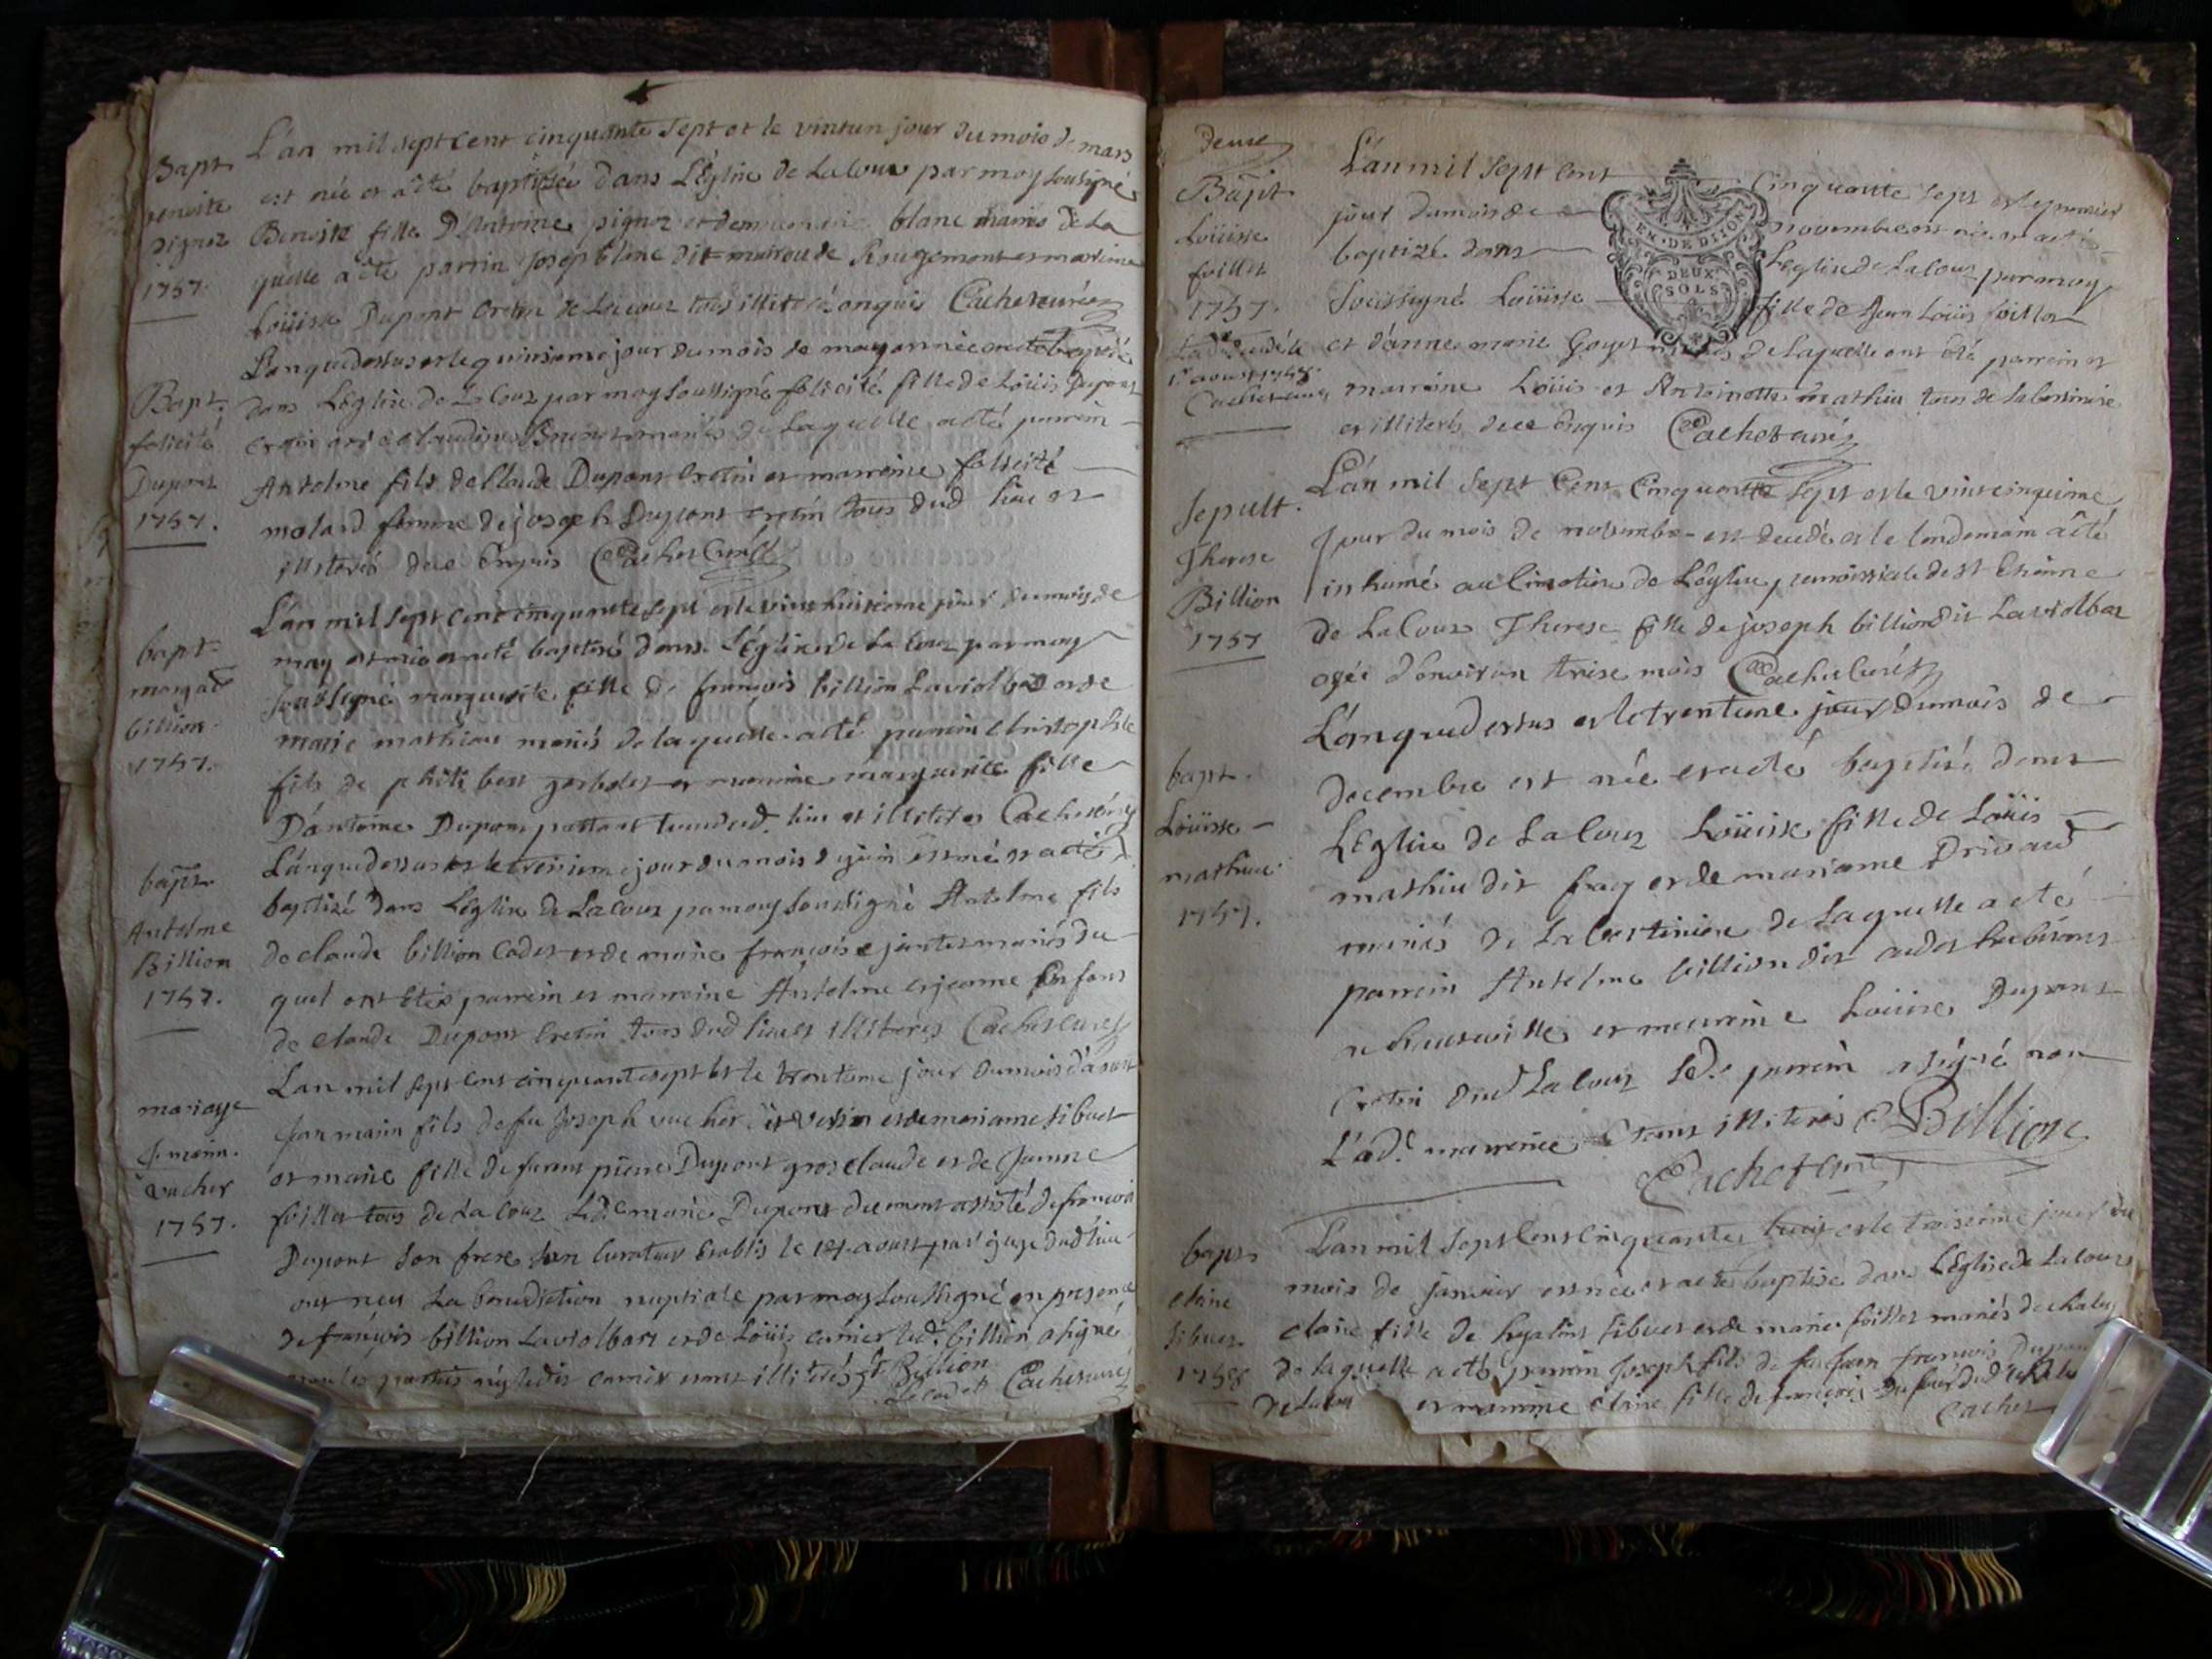 Bapt
benoite
pignoz
1757.
L'an mil sept cent cinquante sept et le vintun jour du mois de mars
est née et a été baptisée dans L'église de La Couz par moy sousigné
Benoite fille D'Antoine pignoz et blanc mariés de La
quelle a été parrin Joseph blanc dit de Rougemont et marreine
Loüisse Dupont Cretin de La couz tous illiterés enquis Cachet curé
Bapt.
felicité
Dupont
1757.
L'an que dessus et le quinsieme jour du mois de may année et baptisé
dans L'église de La Couz par moy soussigné felicité fille de Loüis Dupont
Cretin et de claudine Brunet mariés de Laquelle a été parrein
Antelme fils de Claude Dupont Cretin et marreine felicité
molard femme de joseph Dupont cretin tous dud lieu et
illiterés de ce Enquis Cachet Curé
bapt
margte
billion
1757.
L'an mil sept cent cinquante sept et le vint huitieme jour du mois de
may est née et a été baptisé dans L'église de La Couz par moy
soussigné marguerite fille de françois billion Laviolbas et de
marie mathieu mariés de laquelle a été parrein Christophle
fils de philibert et marreine marguerite fille
D'antoine Dupont tous dud. lieu et illiterés Cachet Curé
bapt
Antelme
Billion
1757.
L'an que dessus et le troisieme jour du mois de juin est né et a été
baptizé dans L'église de La Couz par moy soussigné Antelme fils
de claude billion Cadet et de marie françoise mariés du
quel ont Etés parrein et marreine Antelme et jeanne Enfans
de Claude Dupont Cretin tous dud lieu et illiteres Cachet curé
mariage
Jn marin
vucher
1757.
L'an mil sept cent cinquante sept et le trentieme jour du mois d'aoust
Jean marin fils de feu Joseph vucher et de mariane sibuet
et marie fille de feu pierre Dupont gros claude et de Jeanne
foillet tous de La Couz Lade marie Dupont duement assisté de françois
Dupont son frere son Curateur Etablis le aoust par juge dud lieu
ont reçu La benediction nuptiale par moy soussigné en presence
de françois billion Laviolbas et de Loüis carrier led. billion a signé
non les parties ny ledit carrier etant illiterés fr Billion
Lecadet Cachet curé
Deux
Bapt
Loüisse
foillet
1757.
Lade decedé le
1er aoust 1758.
Cachet curé
EN. DE DIJON
DEUX
SOLS
L'an mil sept cent Cinquante sept et le premier
jour du mois de novembre est née et a été
baptizé dans L'église de La Couz par moy
soussigné Loüisse fille de Jean Loüis foillet
et d'anne marie Goyet mariés de Laquelle ont été parrein et
marreine Loüis et Antoinette mathieu tous de la bertiniere
et illiterés de ce Enquis Cachet curé
Sepult.
Therese
Billion
1757
L'an mil sept Cent Cinquante sept et le vint cinquieme
jour du mois de novembre est decedé et le lendemain a été
inhumé au Cimetiere de L'église parroissiale de St Etienne
de La Couz Therese fille de joseph billion dit Laviolbas
agée d'environ treise mois Cachet Curé
bapt.
Loüisse
mathieu
1757.
L'an que dessus et le trentieme jour du mois de
decembre est née et a été baptisé dans
L'Eglise de La Couz Loüisse fille de Loüis
mathieu dit fray et de mariane Drivaud
mariés de La bertiniere de Laquelle a été
parrein Antelme billion dit cadet habitant
a hauteville et marreine Loüise Dupont
Cretin dud La Couz Led. parrein a signé non
Lade. marreine Etant illiterés A Billion
Cachet curé
bapt
claire
sibuet
1758
L'an mil sept Cent Cinquante huit et le troisieme jour du
mois de janvier est née et a été baptisé dans L'église de La Couz
claire fille de sibuet et de marie foillet mariés de
de laquelle a été parrein Joseph fils de feu Jean françois Dupont
de La Couz et marreine claire fille de françois
Cachet